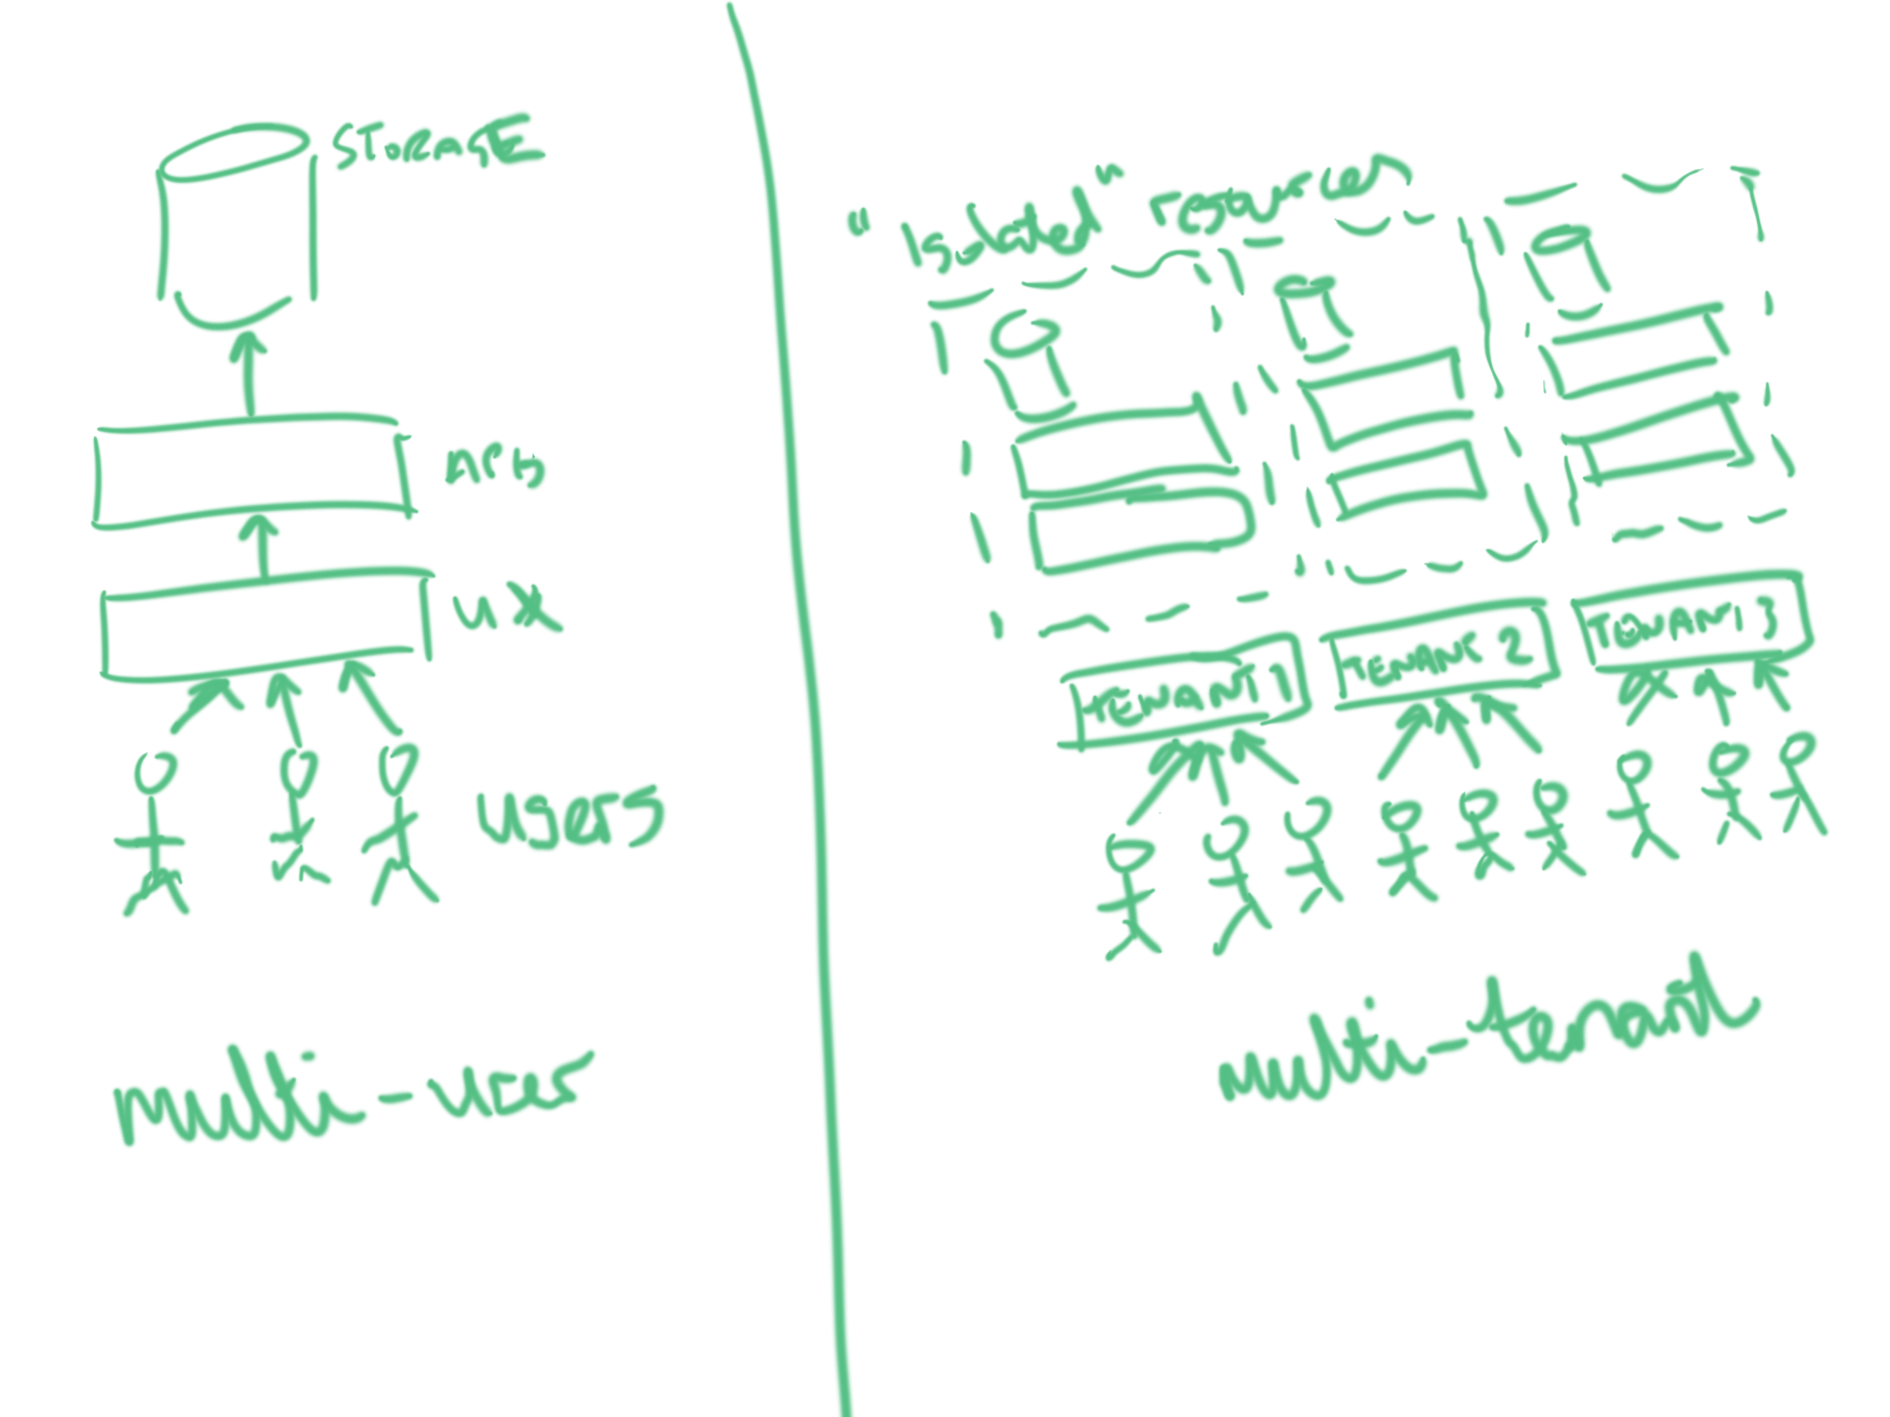 STORAGE
APIs
UX
users
multi-user
"Isolated" resources
TENANT 1
TENANT 2
TENANT 3
multi-tenant